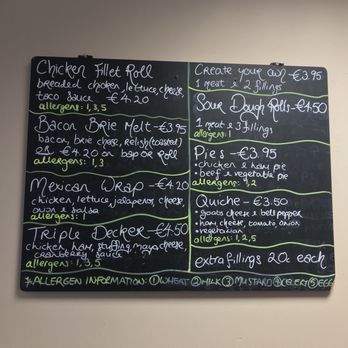 Chicken Fillet Roll
breaded chicken, lettuce, cheese
taco sauce - €4.20
allergens: 1,3,5
Bacon Brie Melt - €3.95
bacon, brie cheese, relish (toasted)
OR €4.20 on bap or roll
allergens: 1,3
Mexican Wrap - €4.20
chicken, lettuce, jalapenos, cheese,
onion & salsa
allergens: 1
Triple Decker - €4.50
chicken, ham, stuffing, mayo, cheese,
cranberry sauce
allergens: 1,3,5
Create your own - €3.95
1 meat & 2 fillings
Sour Dough Rolls - €4.50
1 meat & 3 fillings
allergens: 1
Pies - €3.95
• chicken & ham pie
• beef & vegetable pie
allergens: 1,2
Quiche - €3.50
• goats cheese & bell pepper
• ham, cheese, tomato, onion
• vegetarian
allergens: 1,2,5
extra fillings 20c each
*ALLERGEN INFORMATION: ① WHEAT ② MILK ③ MUSTARD ④ CELERY ⑤ EGG